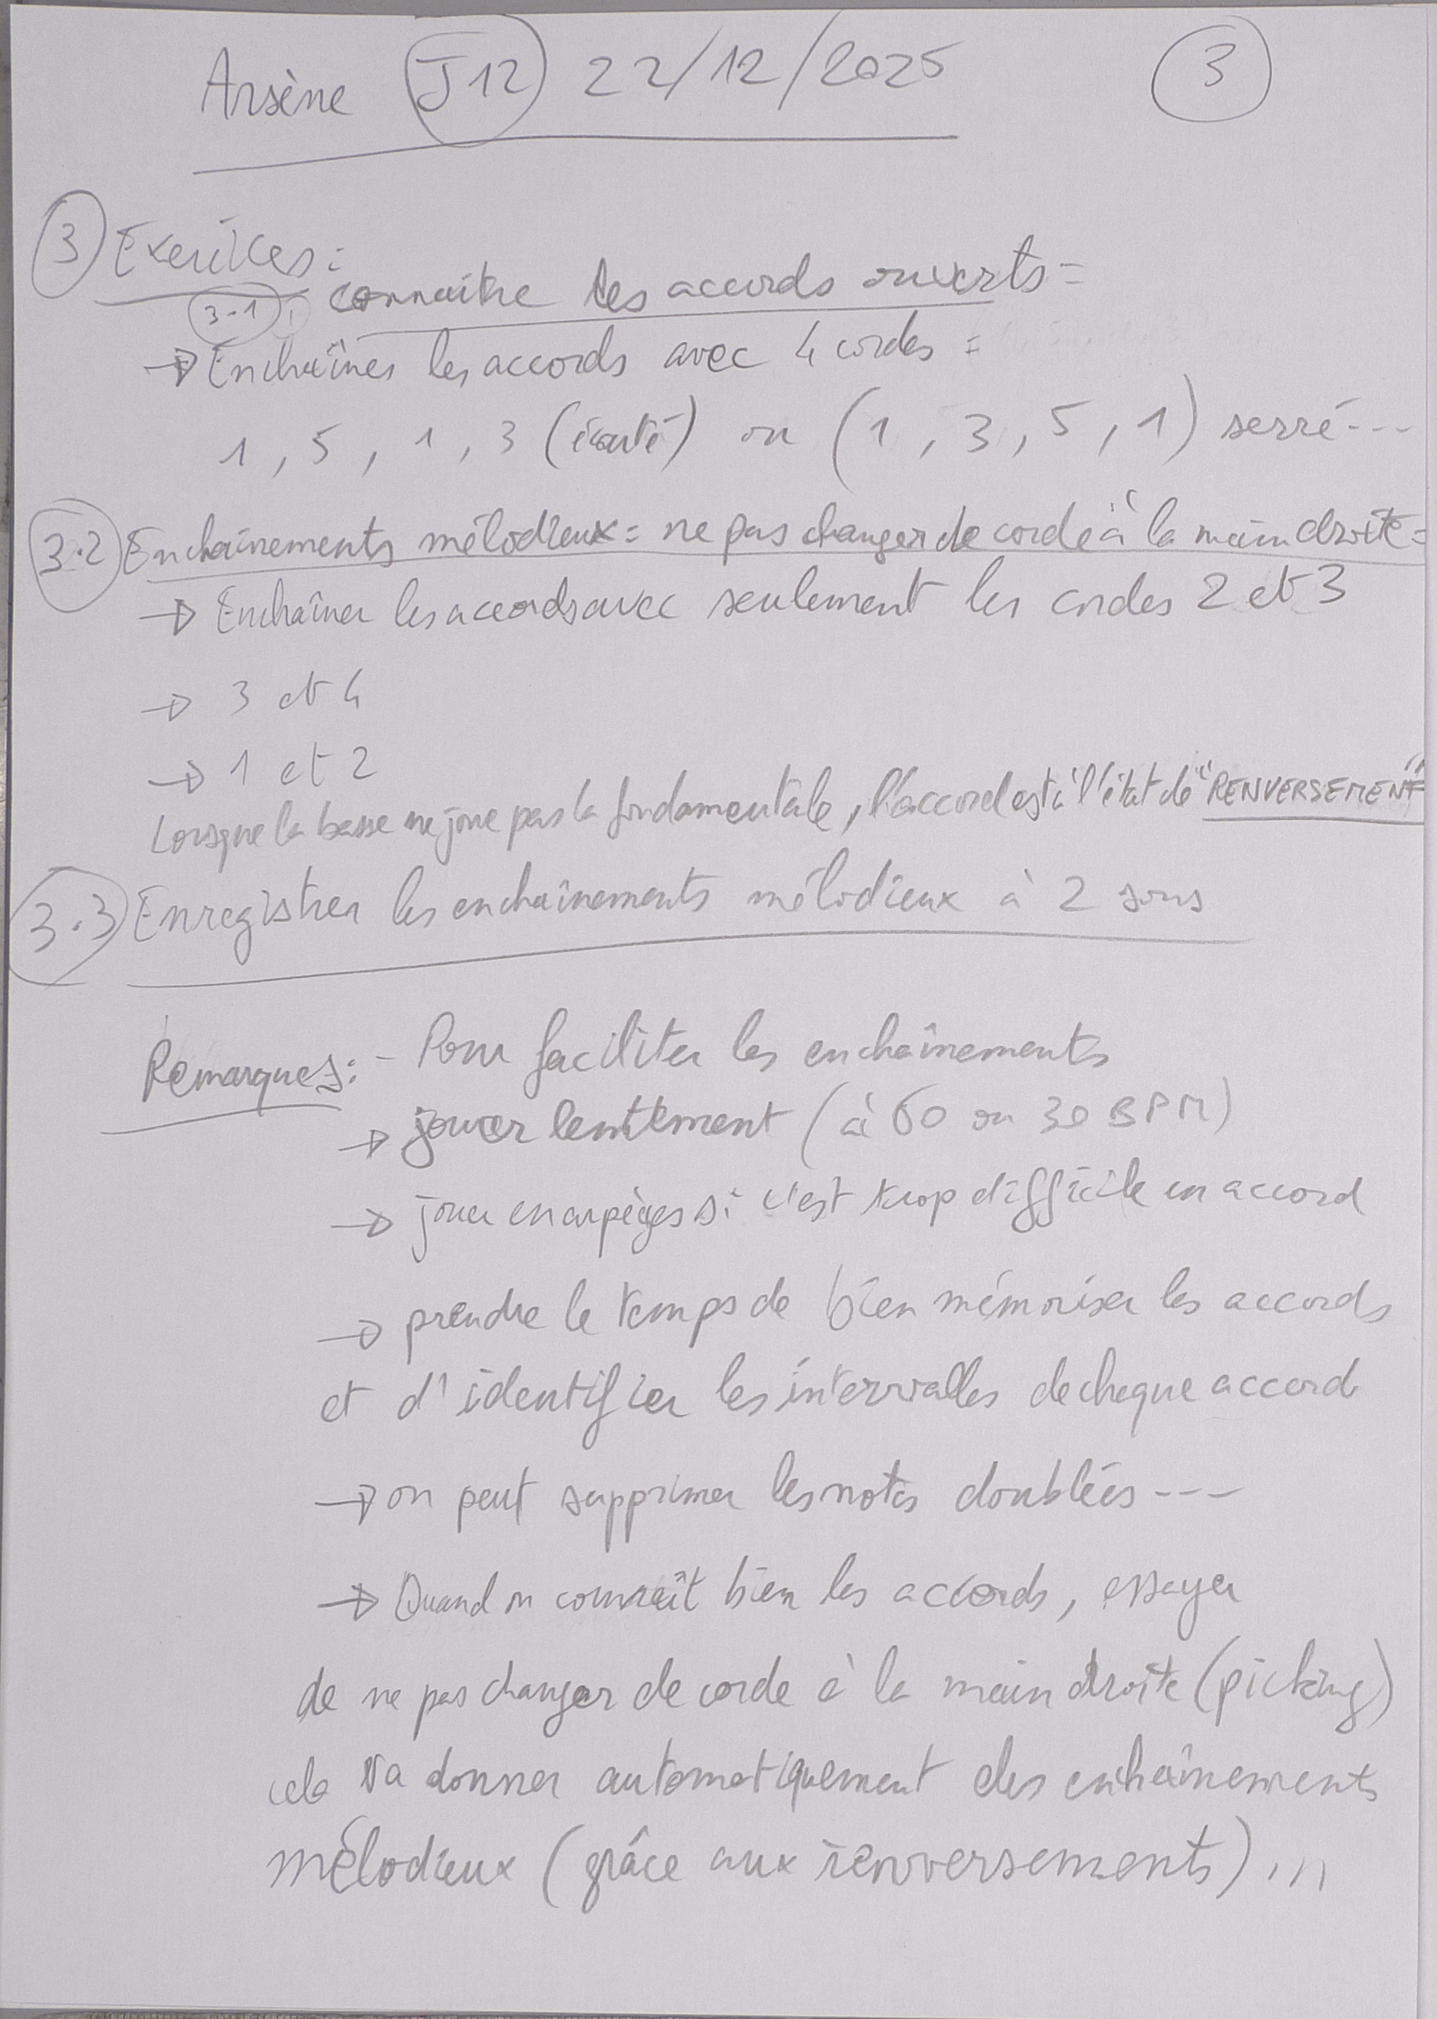 Arsène J12 22/12/2025 3
3 Exercices :
3.1 : connaître les accords ouverts =
→ Enchaîner les accords avec 4 cordes =
1, 5, 1, 3 (écarté) ou (1, 3, 5, 1) serré ---
3.2 Enchaînements mélodieux = ne pas changer de corde à la main droite =
→ Enchaîner les accords avec seulement les cordes 2 et 3
→ 3 et 4
→ 1 et 2
Lorsque la basse ne joue pas la fondamentale, l'accord est à l'état de "RENVERSEMENT"
3.3 Enregistrer les enchaînements mélodieux à 2 sons
Remarques : - Pour faciliter les enchaînements
→ jouer lentement (à 60 ou 30 BPM)
→ jouer en arpèges si c'est trop difficile en accord
→ prendre le temps de bien mémoriser les accords
et d'identifier les intervalles de chaque accord
→ on peut supprimer les notes doublées ---
→ Quand on connaît bien les accords, essayer
de ne pas changer de corde à la main droite (picking)
cela va donner automatiquement des enchaînements
mélodieux (grâce aux renversements) ...